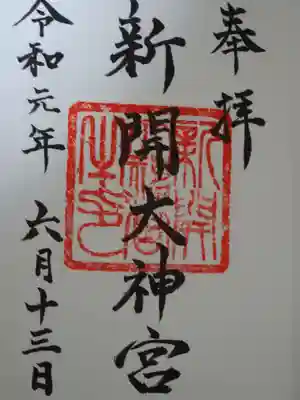 奉拝
新開大神宮
令和元年 六月十三日